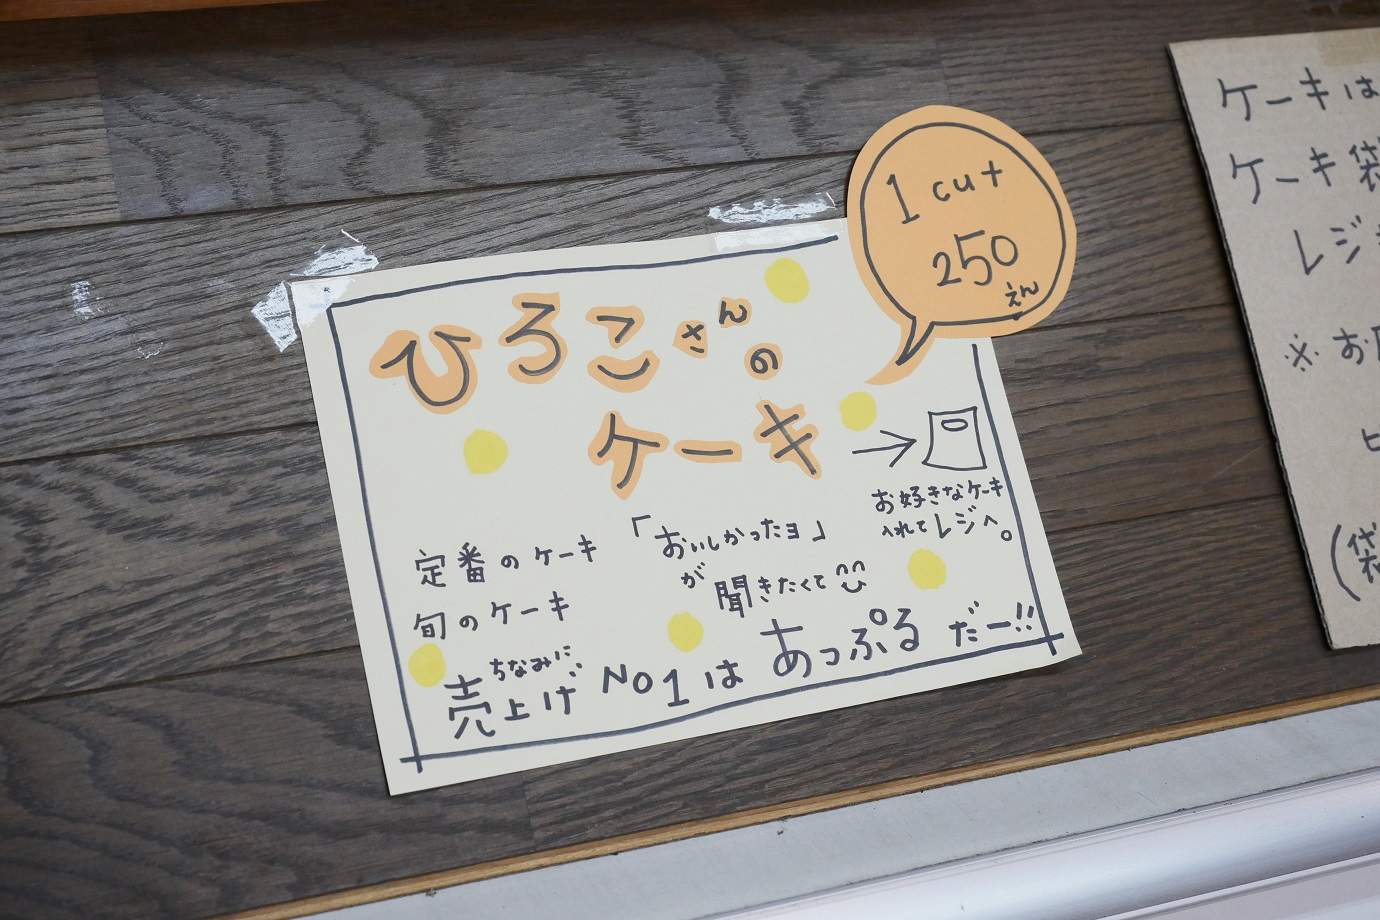 ひろこさんの
ケーキ
1 cut
250
えん
お好きなケーキ
入れてレジへ。
定番のケーキ
旬のケーキ
「おいしかったヨ」
が聞きたくて
ちなみに、
売上げNo1はあっぷるだー!!
ケーキは
ケーキ袋
レジ
※お
(袋